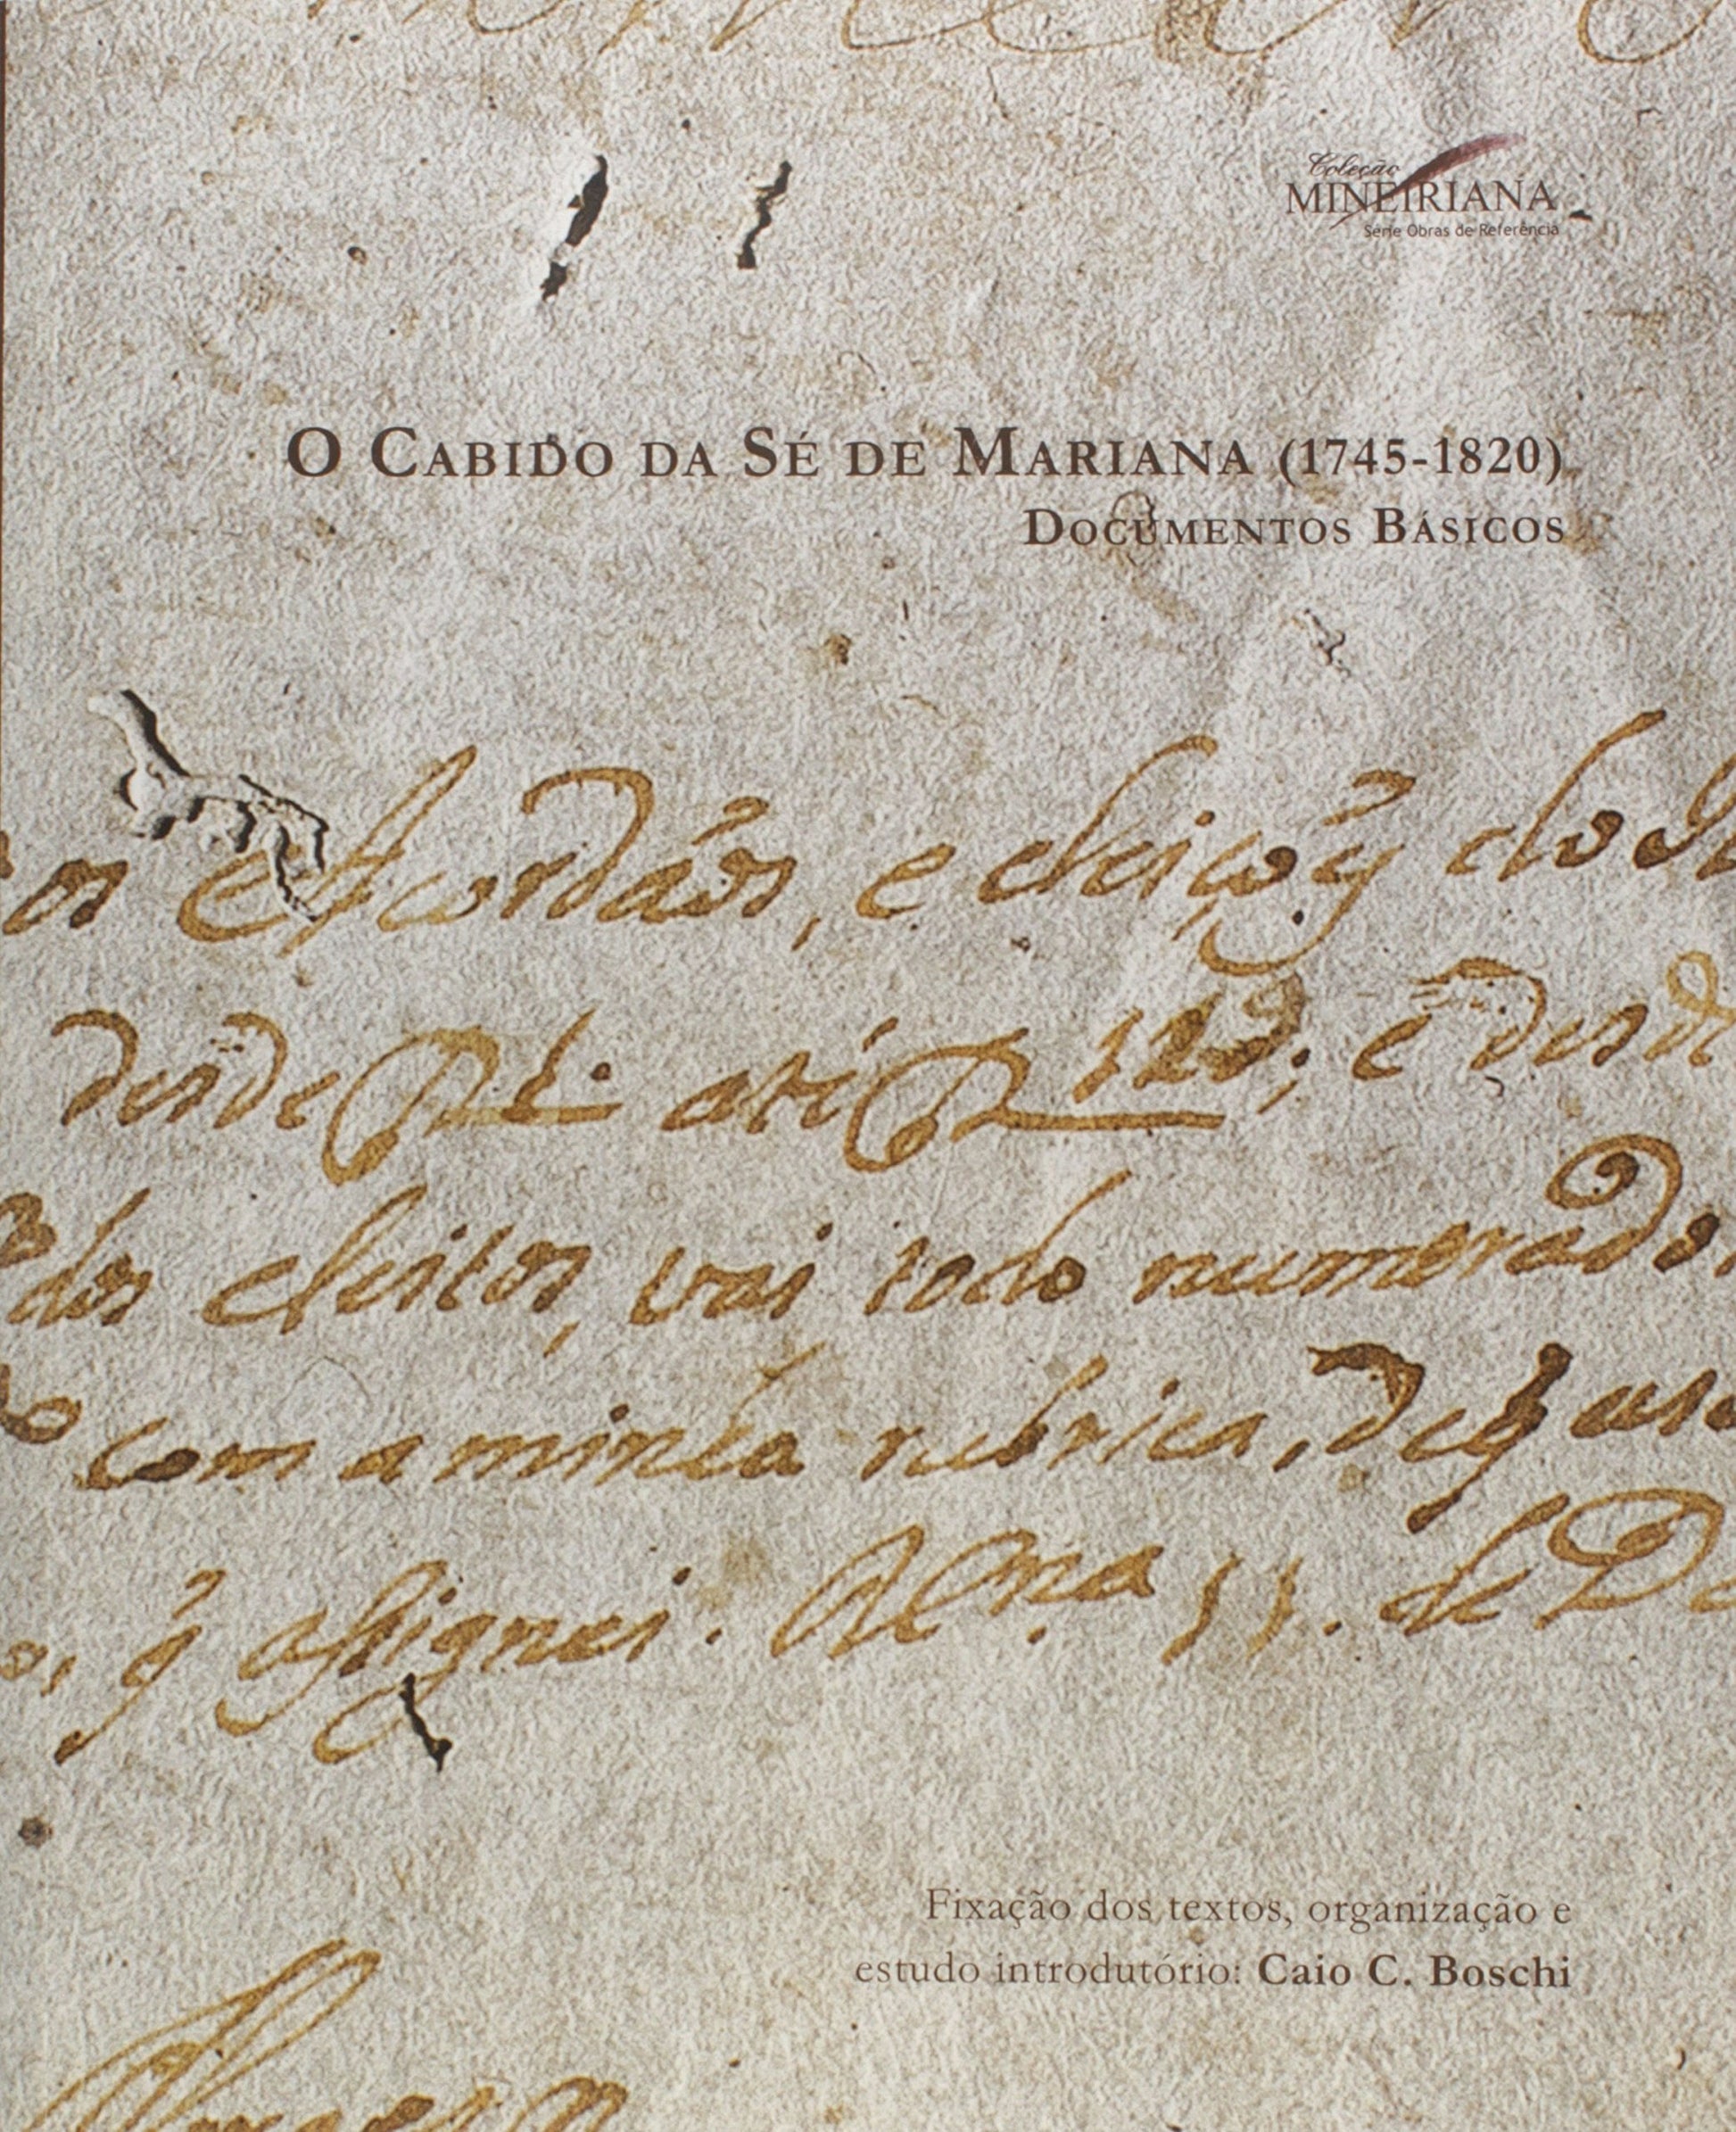 Coleção
MINEIRIANA
Série Obras de Referência
O CABIDO DA SÉ DE MARIANA (1745-1820)
DOCUMENTOS BÁSICOS
os Acordãos, e eleiçoẽs
desde até ; e desde
dos eleitos, vai todo numerado
com a minha rubrica, de q̃ uso
, q̃ assignei. de
Fixação dos textos, organização e
estudo introdutório: Caio C. Boschi